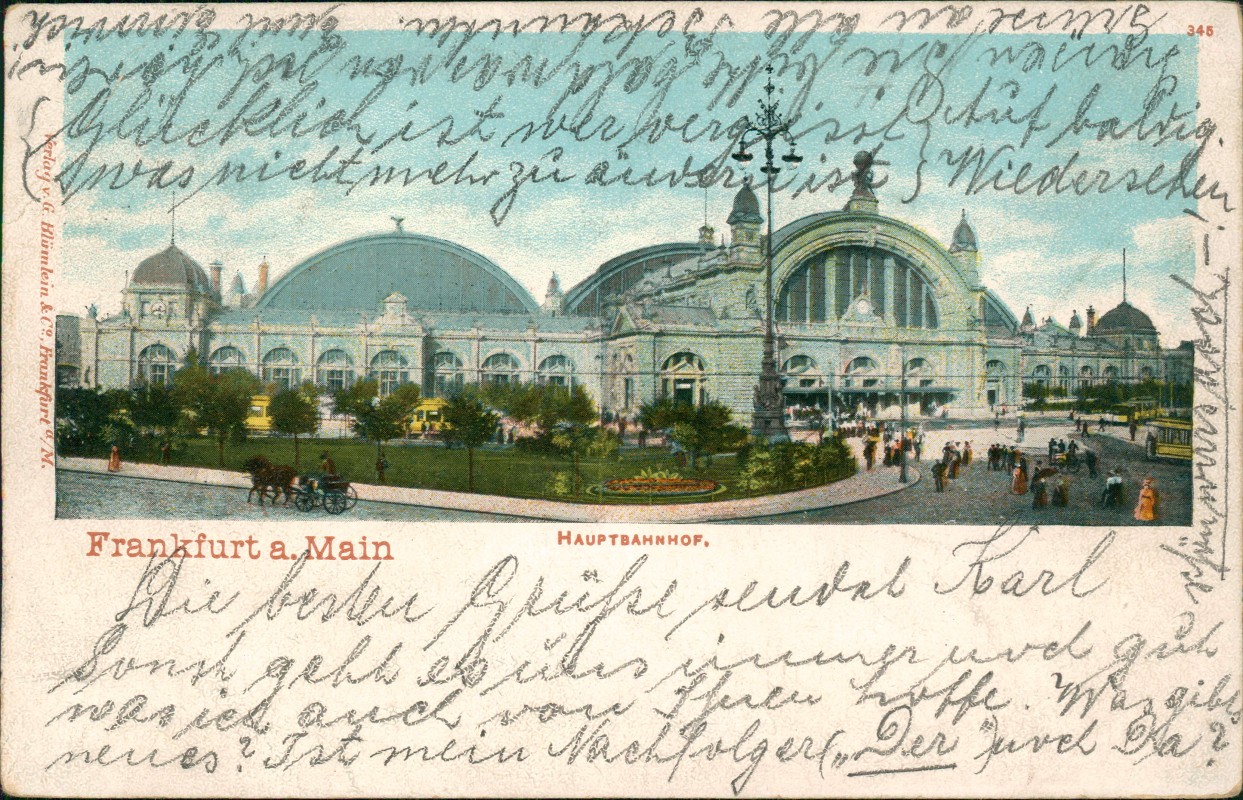 345
Lassen Sie bitte bald was von sich hören!
Grüsse an alle Bekannten.
{ Glücklich ist wer vergisst } Auf baldig.
was nicht mehr zu ändern ist } Wiedersehen!–
Verlag v. G. Blümlein & Co., Frankfurt a/M.
Frankfurt a. Main
HAUPTBAHNHOF.
Die besten Grüsse sendet Karl
Sonst geht es uns immer noch gut
was ich auch von Ihnen hoffe. Was gibts
neues? Ist mein Nachfolger („Der") noch da?